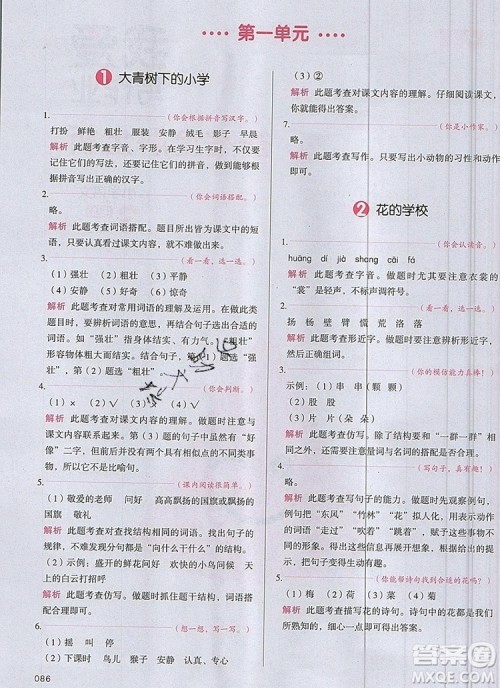 第一单元
1 大青树下的小学
1. (你会根据拼音写汉字。)
打扮 鲜艳 粗壮 服装 安静 绒毛 影子 早晨
解析 此题考查字音、字形。在学习生字时，不仅要
记住它们的写法，还要记住它们的读音，这样就能根
据拼音写出正确的汉字。
2. (你会词语搭配。)
略。
解析 此题考查词语搭配。题目所给词语来源于课文中的短
句，只要认真看过课文，便能很快完成。
3. (看一看，选一选。)
(1) 强壮 (2) 粗壮 (3) 平静
(4) 安静 (5) 好奇 (6) 惊奇
解析 此题考查对常用词语的理解及运用。在做此类
题目时，要辨析词语的意思，结合句子选择合适的
词语。如“强壮”指身体结实、有力气。“粗壮”形
容物体粗大而结实。结合句子可知第（1）题选“强
壮”，第（2）题选“粗壮”。
4. (你会判断。)
(1) × (2) √ (3) × (4) √
解析 此题考查对课文内容的理解。做题时注意与课
文内容联系起来。第（3）题的句子中虽然有“好
像”二字，但前后描写的都是小鸟，不是两个不同的
事物，因此不是比喻句。
5. (课内阅读很简单。)
(1) 敬爱的老师 问好 高高飘扬的国旗或飘扬的
国旗 敬礼
解析 此题考查对查找结构相同的词语。找出句子的
规律，发现答案都是“向什么干什么”的结构。
(2) 示例：盛开的鲜花问好 欢快的小鸟问候 天
上的白云打招呼
解析 此题考查仿写。仿写时抓住题干结构，结构搭
配合理即可。
6. (想一想，写一写。)
(1) 摇 叫 停
(2) 下课时 鸟儿 猴子 安静 认真、专心
086
(3) ②
解析 此题考查对课文内容的理解。仔细阅读课文，
你就能得出答案。
7. (你是小作家。)
略。
解析 此题考查写作。只要写出小动物的习性和动作
即可。
2 花的学校
1. (你会认读音。)
huāng dí jià shang cāi fǎ
解析 此题考查字音。做题时尤其要注意的是“衣裳”的
“裳”是轻声，不标声调符号。
2. (看一看，选一选。)
扬 杨 壁 臂 慌 荒 洛 落
解析 此题考查形近字。做题时要注意辨析形近字。
3. (你的模仿能力真棒！)
示例：(1) 串 串（颗 颗）
(2) 股 股
(3) 片 片（朵 朵）
解析 此题考查仿写。除了结构要和“一群一群”相
同以外，还要注意量词与名词的搭配要合理。
4. (写句子，真有趣！)
略。
解析 此题考查写句子的能力。做题时注意观察例句，
例句把“东风”“竹林”“花”拟人化，描写它们的动
作时运用了“走过”“吹着”“跳着”，就像在描写人
一样。注意发挥想象，把句子补充完整。
5. (你能帮诗句找到合适的花吗？)
(1) 荷 (2) 菊 (3) 梅
解析 此题考查描写花的诗句。诗句中有花名的可直